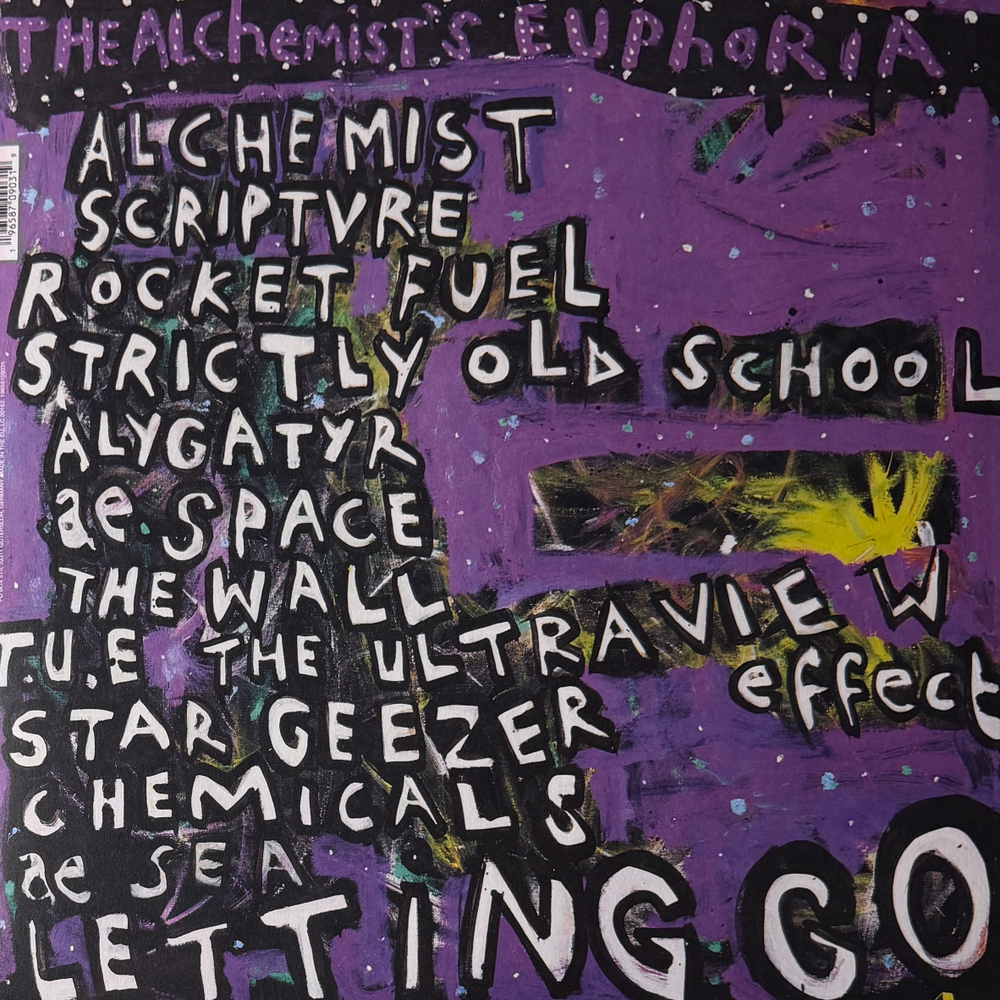 THE ALChemIST'S EUPhoRiA
ALCHEMIST
SCRIPTVRE
ROCKET FUEL
STRICTLY OLD SCHOOL
ALYGATYR
ae SPACE
THE WALL
T.U.E THE ULTRAVIEW
effect
STAR GEEZER
CHEMICALS
ae SEA
LETTiNG GO
1 96587 09031 9